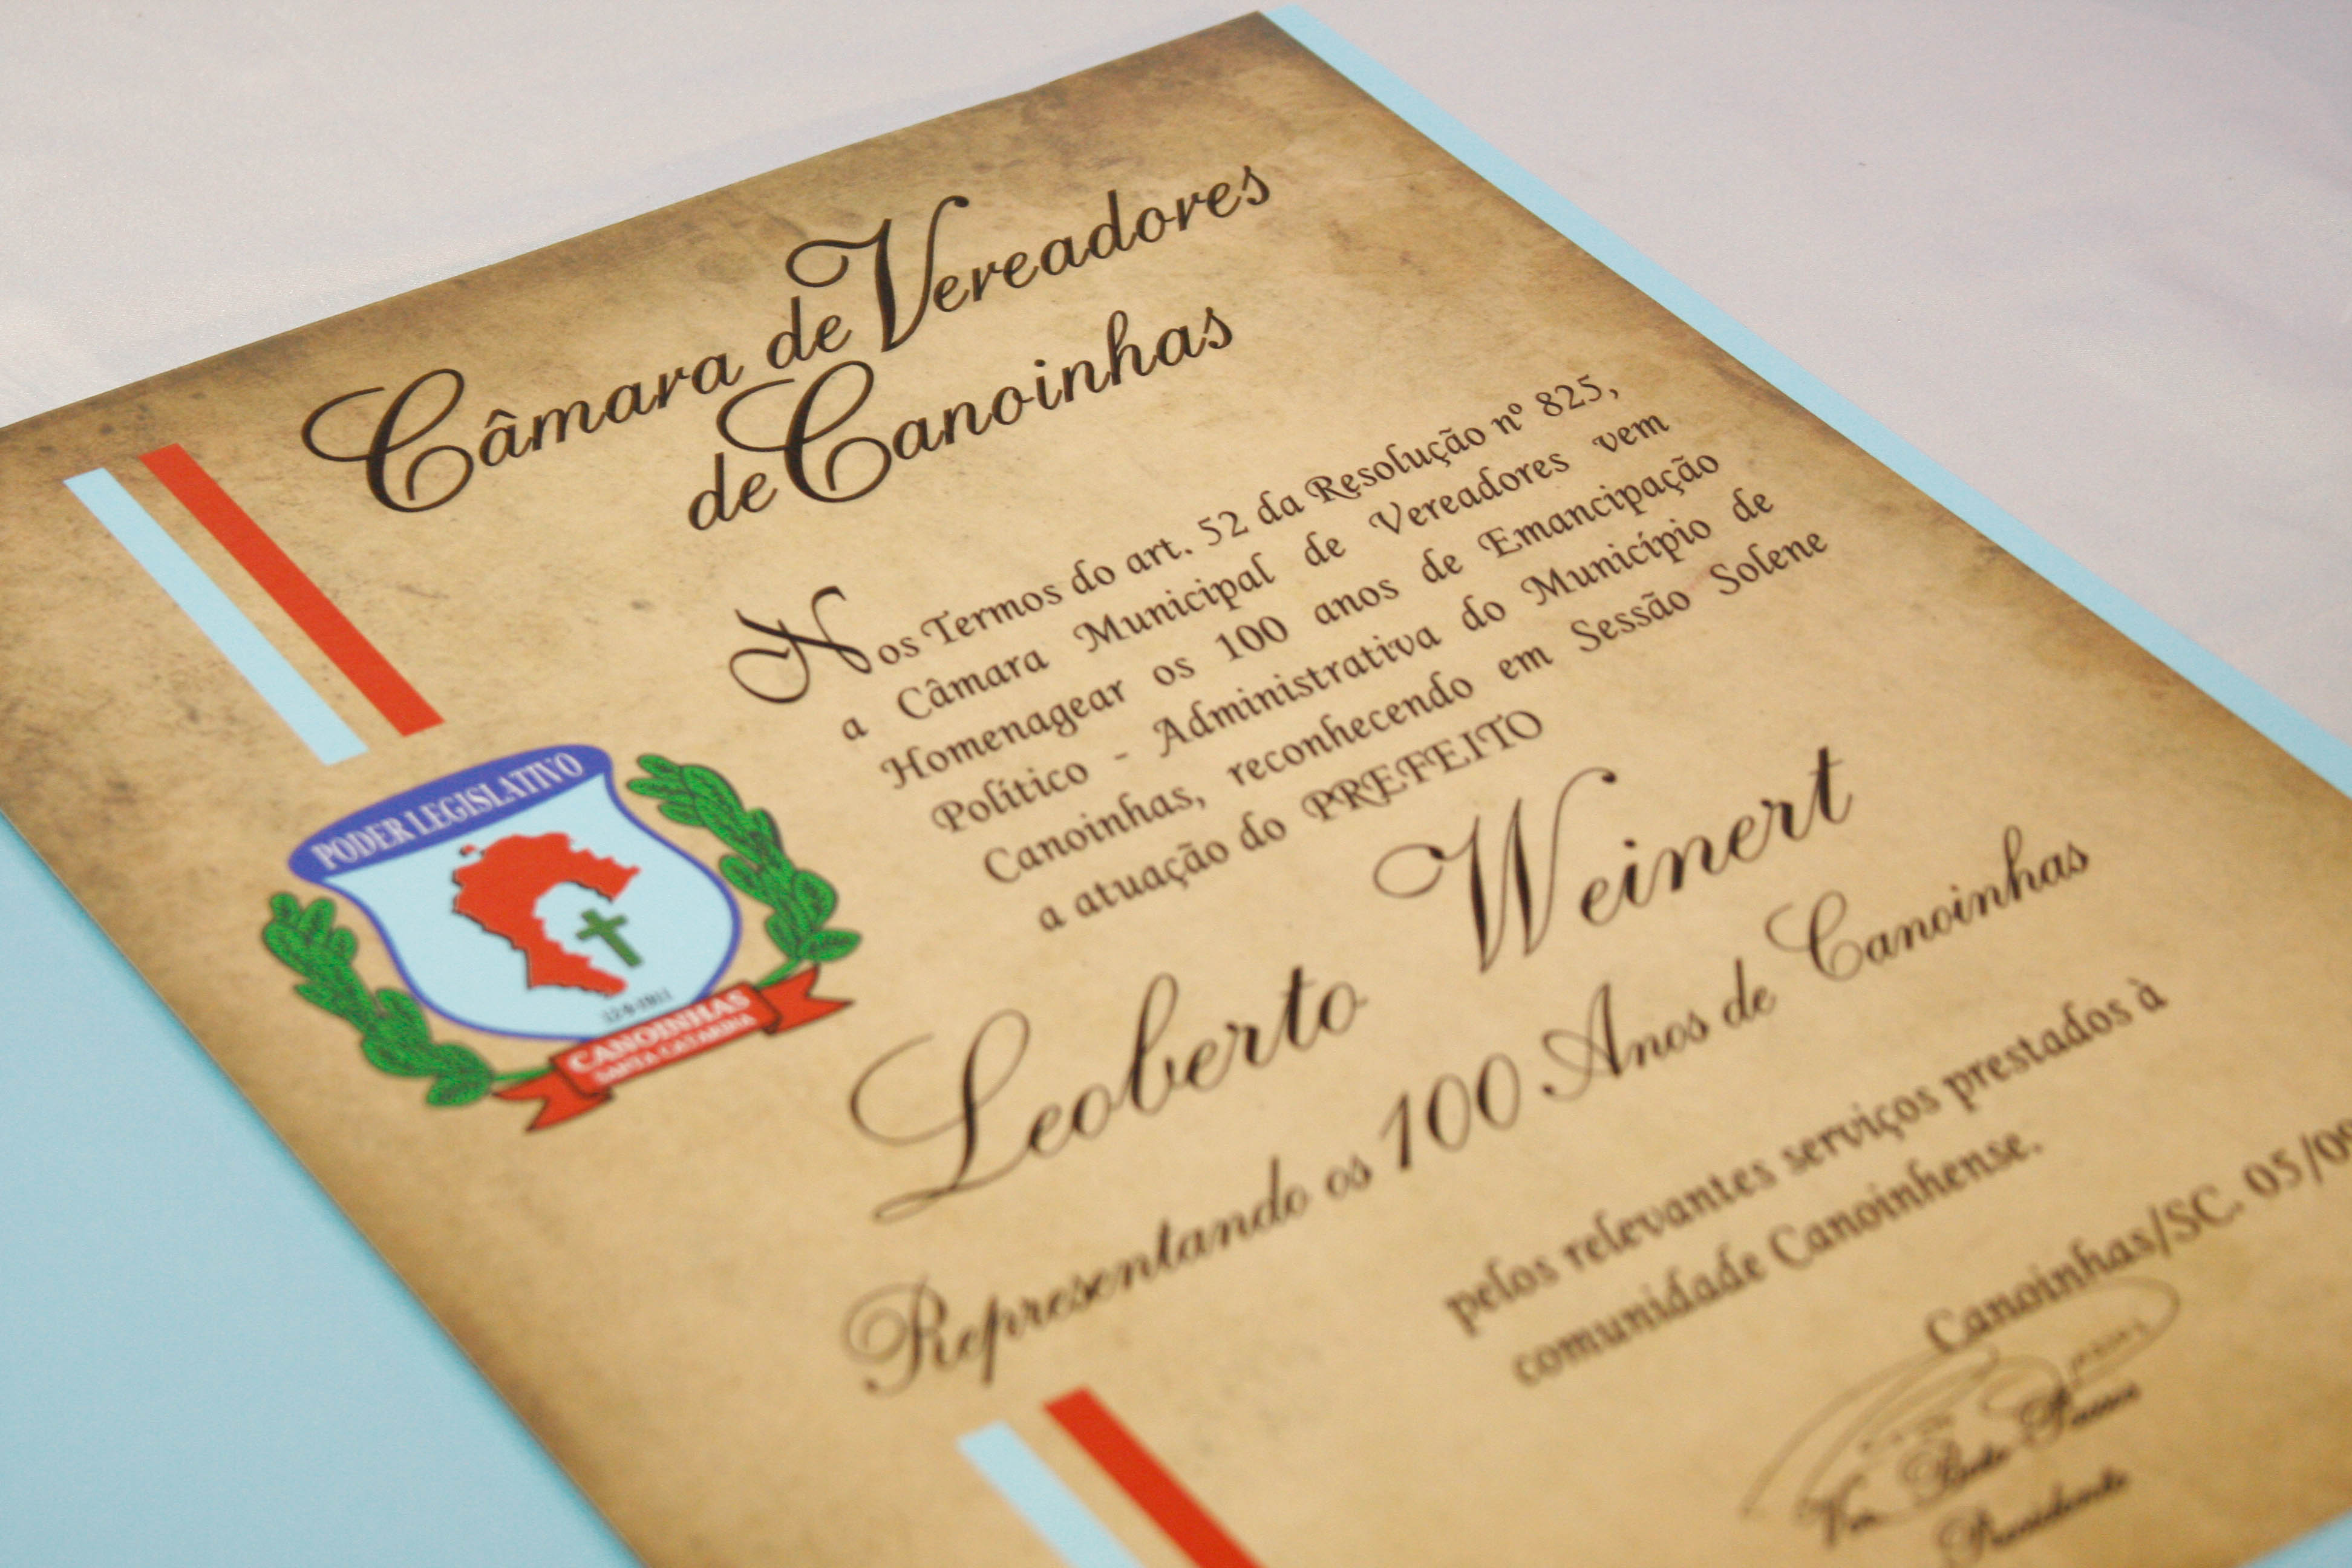 Câmara de Vereadores
de Canoinhas
Nos Termos do art. 52 da Resolução nº 825,
a Câmara Municipal de Vereadores vem
Homenagear os 100 anos de Emancipação
Político - Administrativa do Município de
Canoinhas, reconhecendo em Sessão Solene
a atuação do PREFEITO
Leoberto Weinert
Representando os 100 Anos de Canoinhas
pelos relevantes serviços prestados à
comunidade Canoinhense.
Canoinhas/SC. 05/09
Ver. Beto Passos
Presidente
PODER LEGISLATIVO
12-9-1911
CANOINHAS
SANTA CATARINA